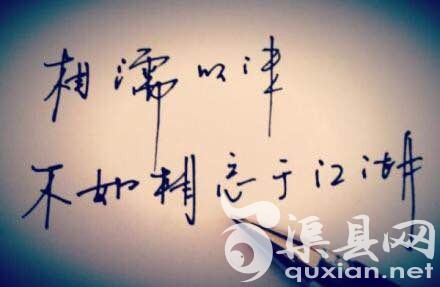 相濡以津
不如相忘于江湖
渠县网
quxian.net